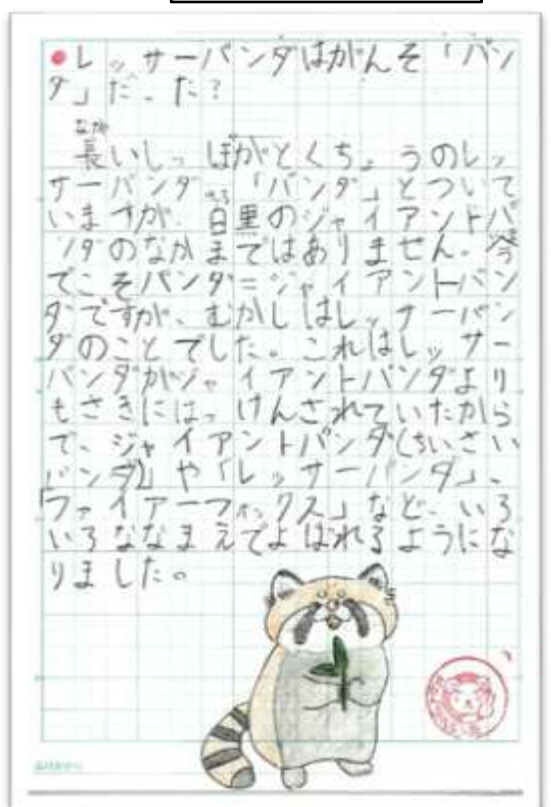 ●レッサーパンダはがんそ「パン
ダ」だった？
なが
長いしっぽがとくちょうのレッ
サーパンダ。「パンダ」とついて
いますが、白黒のジャイアントパ
ンダのなかまではありません。今
でこそパンダ=ジャイアントパン
ダですが、むかしはレッサーパン
ダのことでした。これはレッサー
パンダがジャイアントパンダより
もさきにはっけんされていたから
で、ジャイアントパンダ(ちいさい
パンダ)」や「レッサーパンダ」、
「ファイアーフォックス」など、いろ
いろななまえでよばれるようにな
りました。